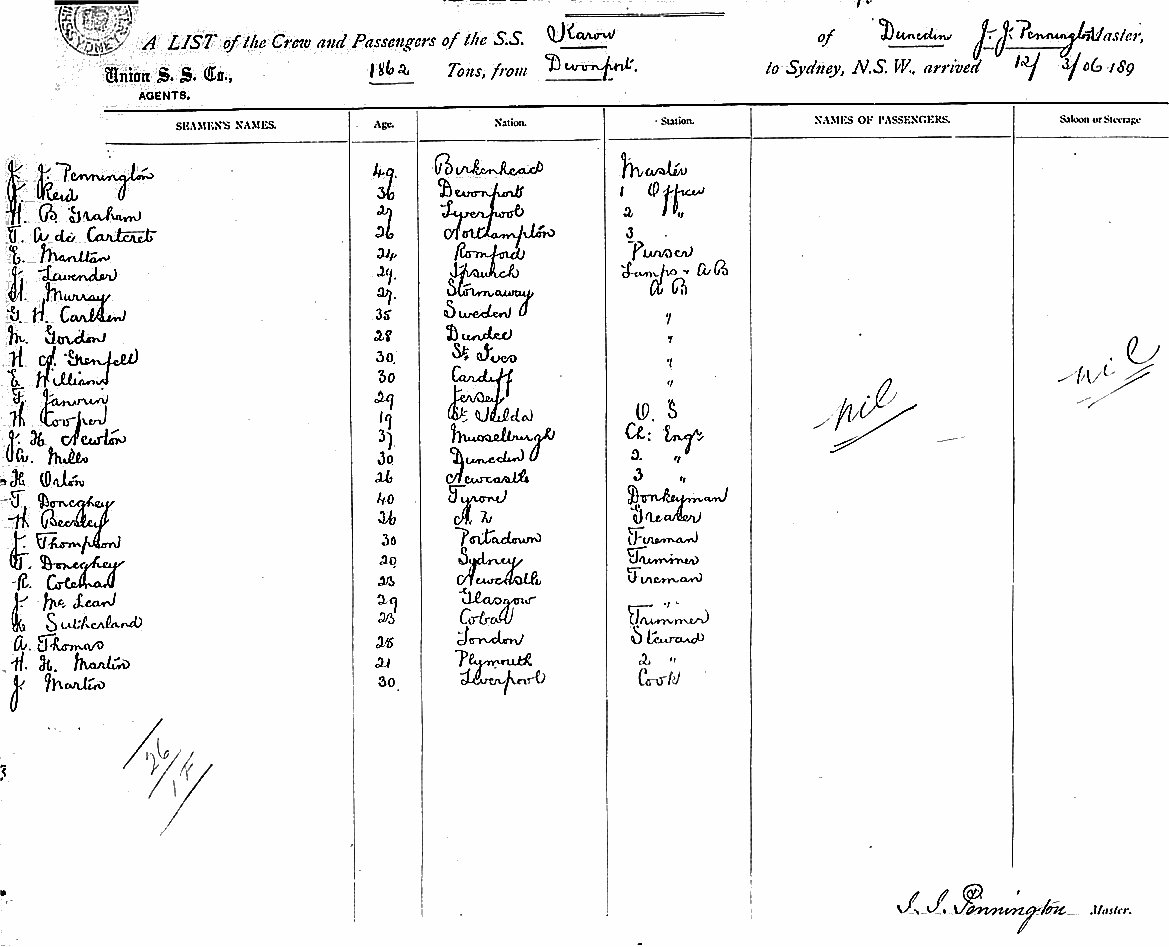 A LIST of the Crew and Passengers of the S.S. Karori of Dunedin J. J. Pennington Master,
Union S. S. Co., AGENTS. 1862 Tons, from Devonport, to Sydney, N.S.W., arrived 12/ 3/06 189
SEAMEN'S NAMES. Age. Nation. Station. NAMES OF PASSENGERS. Saloon or Steerage
J. J. Pennington 49. Birkenhead Master
J. Reid 36 Devonport 1 Officer
H. B. Graham 27 Liverpool 2 "
T. A de Carteret 26 Northampton 3
E. Manlton 24 Romford Purser
J. Lavender 29. Ipswich Lamps - A B
Murray 27. Stornaway A B
G H. Carlsen 35 Sweden "
M. Gordon 28 Dundee "
H Grenfell 30. St. Ives "
E Williams 30 Cardiff "
F Janvrin 29 Jersey
H Cooper 19 St. Kilda O. S
J. H Newton 37 Musselburgh Ch: Engr
W. Mills 30 Dunedin 2. "
H Orton 26 Newcastle 3 "
T. Doneghey 40 Tyrone Donkeyman
H Beesley 36 N. Z Greaser
J. Thompson 30 Portadown Fireman
T. Doneghey 20 Sydney Trimmer
R. Coleman 23 Newcastle Fireman
J. Mc Lean 29 Glasgow "
Sutherland 23 Trimmer
A. Thomas 25 London Steward
H. H. Martin 21 Plymouth 2 "
J. Martin 30. Liverpool Cook
nil nil
26/
J. J. Pennington Master.